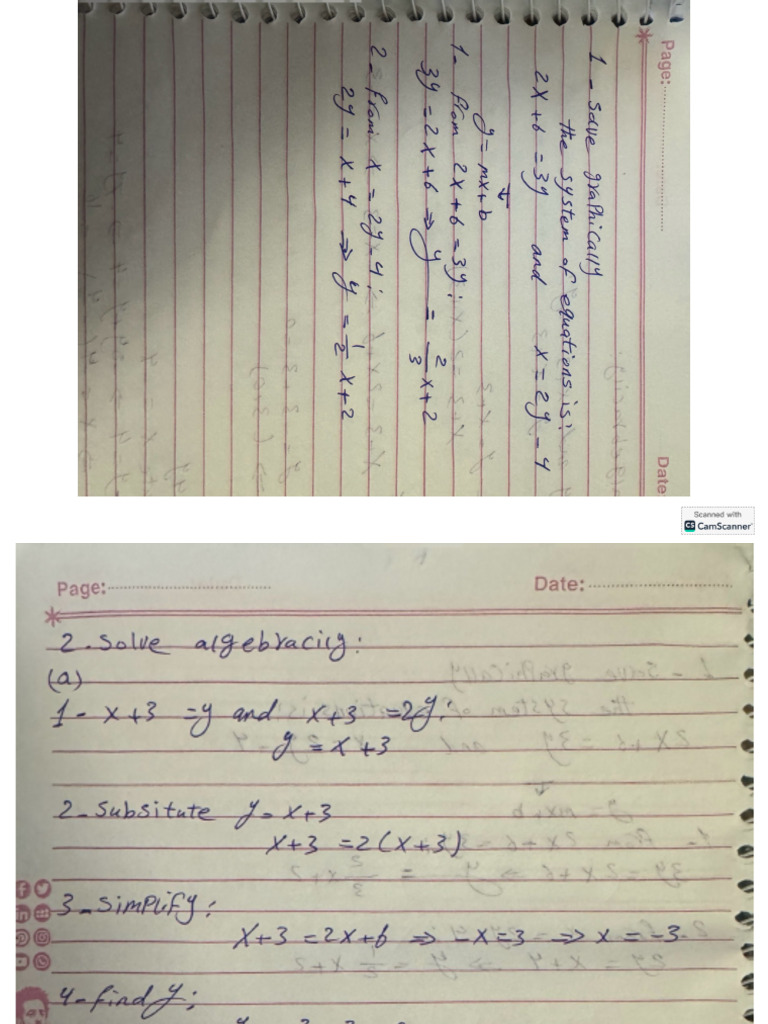 Page:
Date
1 - solve graphically
the system of equations is:
2x+6=3y and x=2y-4
y=mx+b
1- from 2x+6=3y:
3y=2x+6 ⇒ y = 2/3 x+2
2- from x=2y-4:
2y=x+4 ⇒ y=1/2 x+2
Scanned with
CS CamScanner
Page:
Date:
2. Solve algebracily:
(a)
1- x+3 =y and x+3 =2y:
y=x+3
2- Subsitute y=x+3
x+3 =2(x+3)
3- simplify:
x+3=2x+6 ⇒ -x=3 ⇒ x=-3
4- find y: